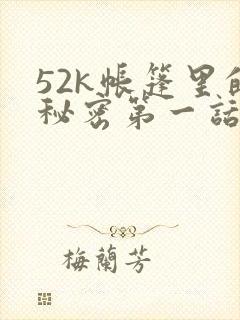 52k帳篷里的
秘密第一話
梅蘭芳